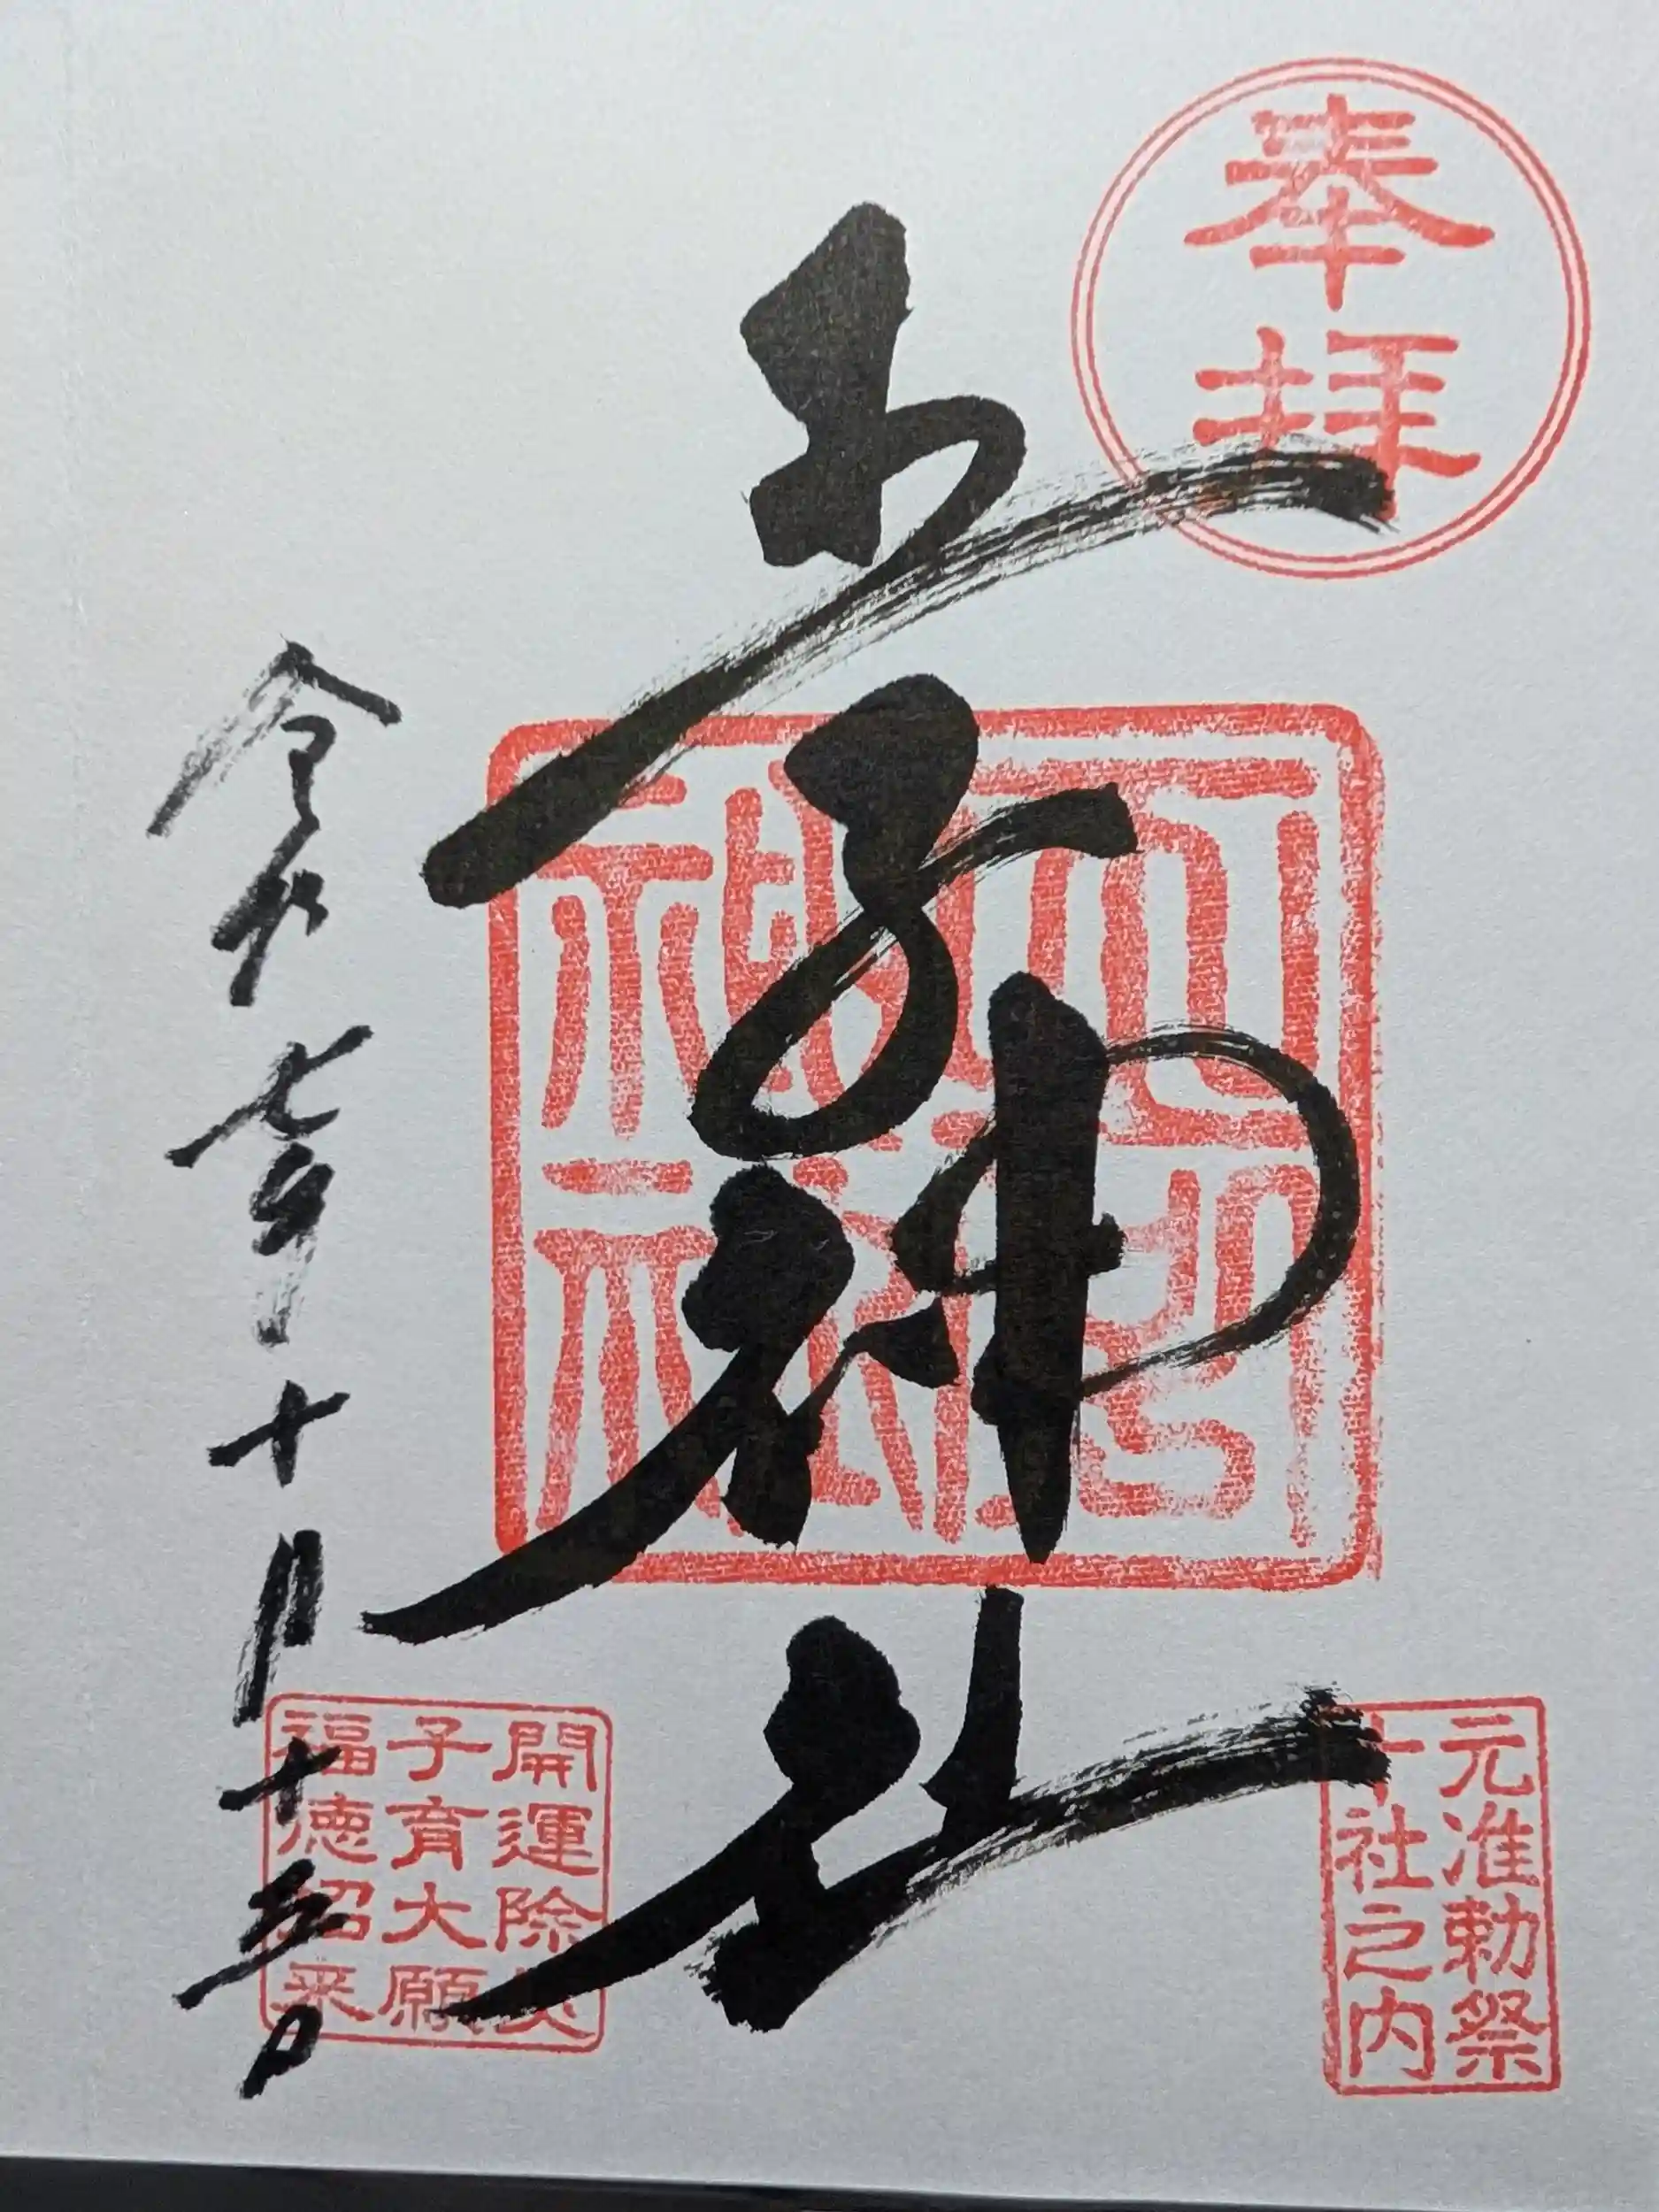 奉拝
元准勅祭
十社之内
王子神社
令和七年十月十五日
開運除災
子育大願
福徳招来